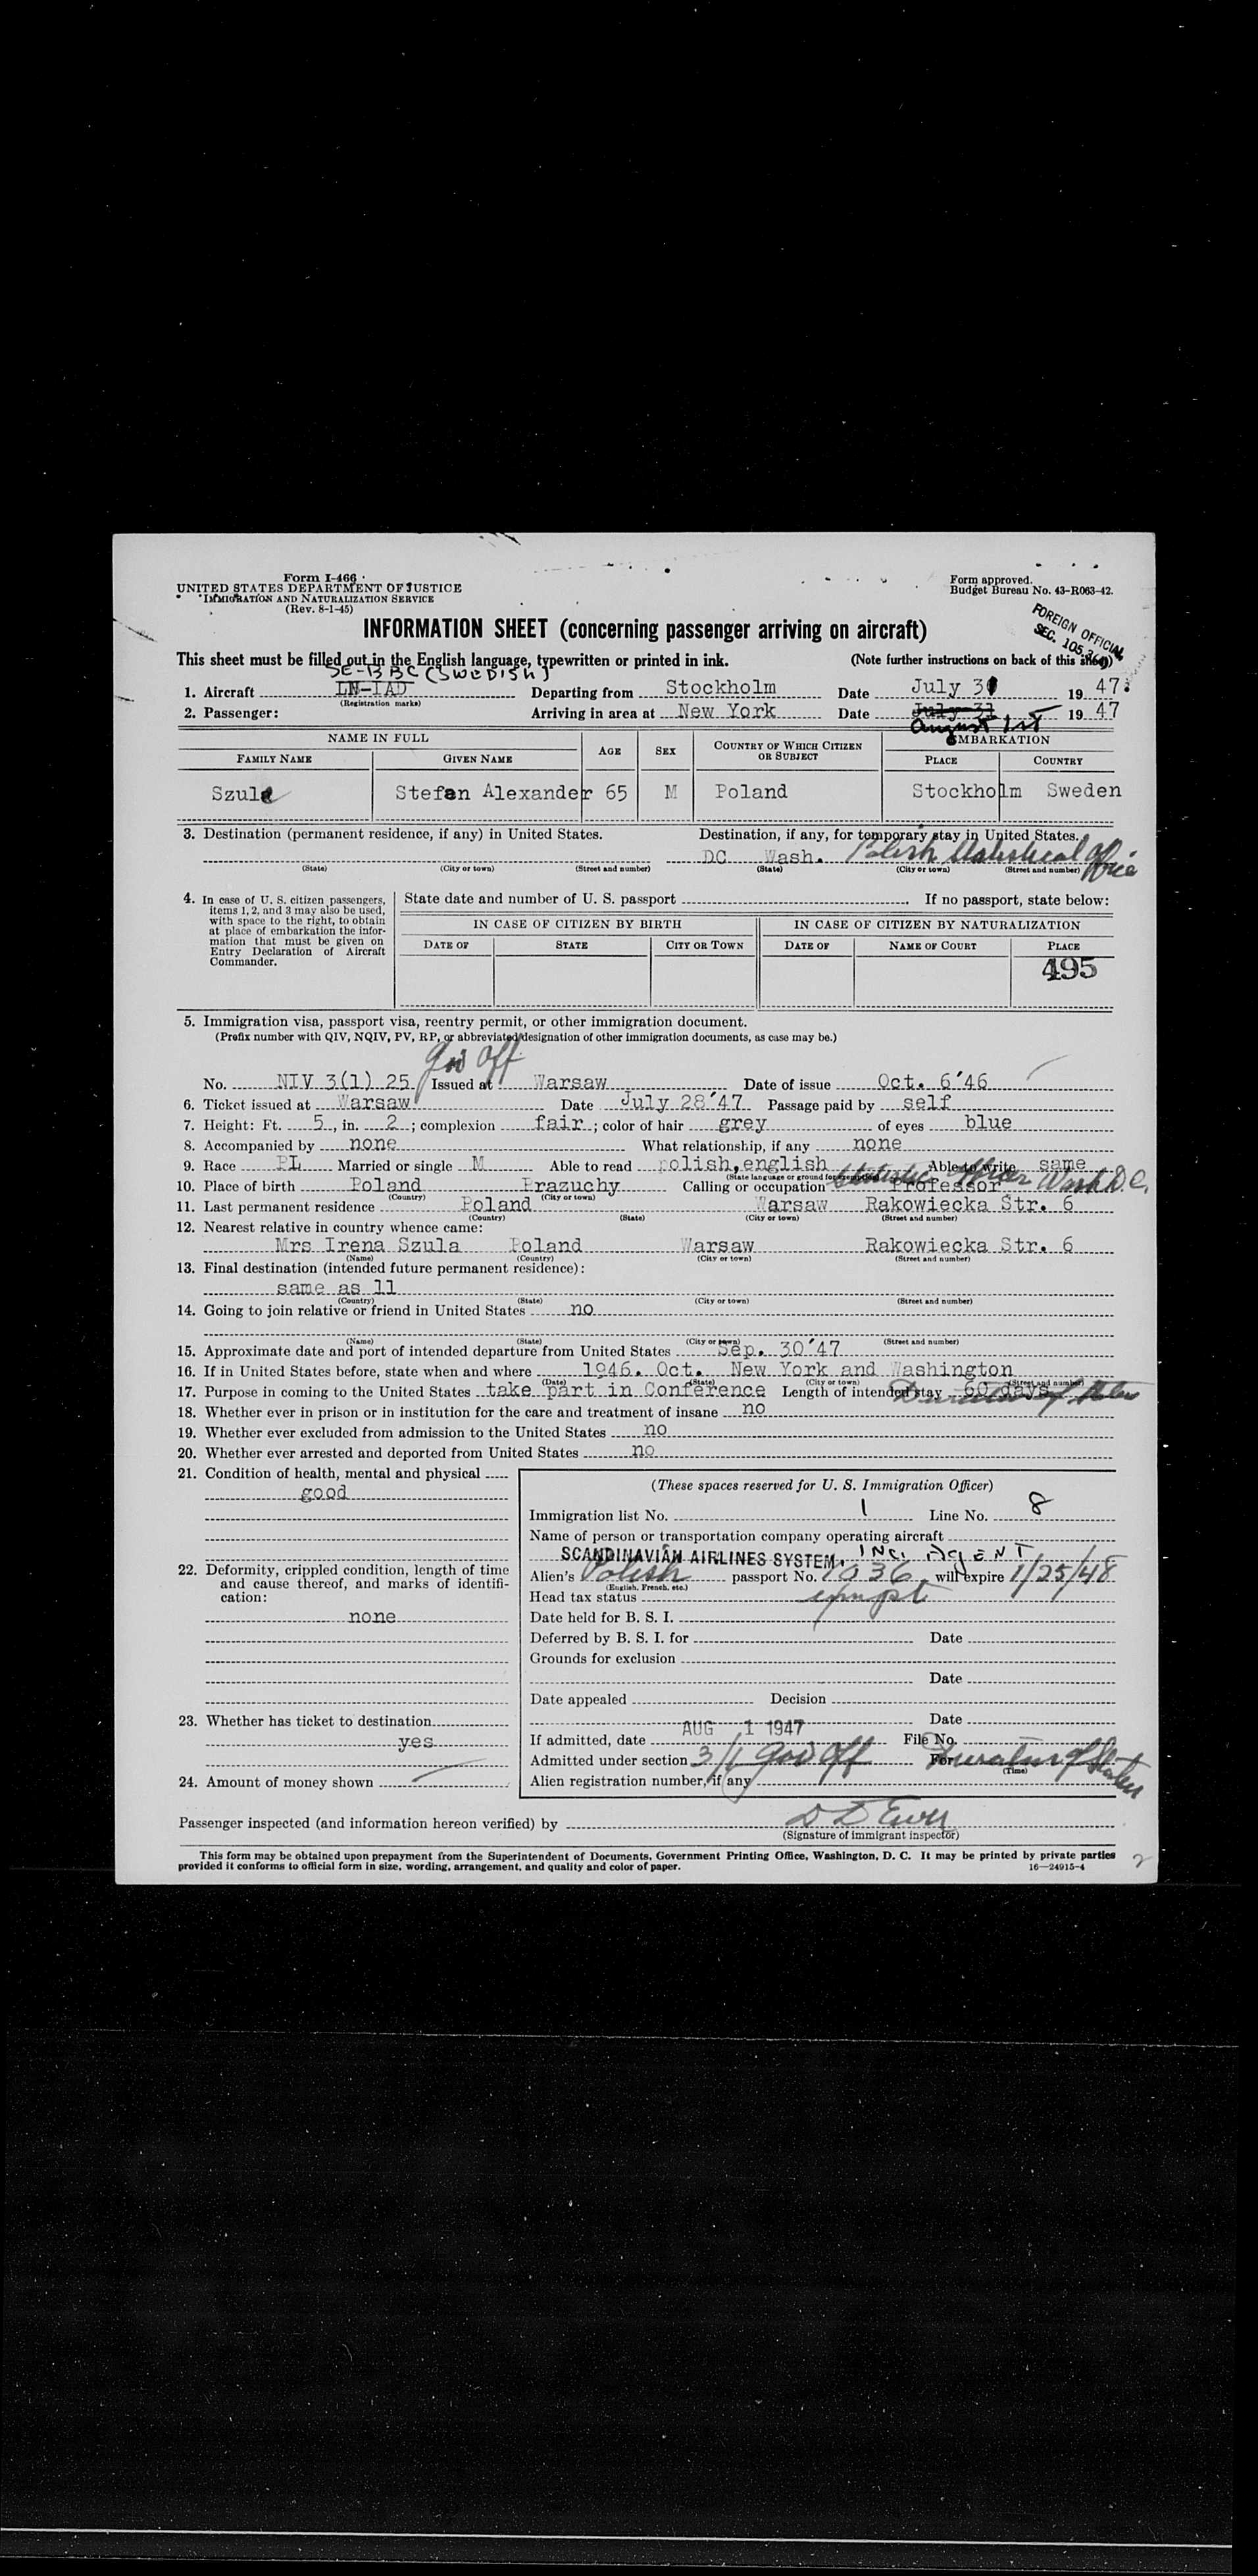 Form I-466
UNITED STATES DEPARTMENT OF JUSTICE
IMMIGRATION AND NATURALIZATION SERVICE
(Rev. 8-1-45)
Form approved.
Budget Bureau No. 43-R063-42.
FOREIGN OFFICIAL
SEC. 105.3
INFORMATION SHEET (concerning passenger arriving on aircraft)
This sheet must be filled out in the English language, typewritten or printed in ink. (Note further instructions on back of this sheet)
SE-BBC (SWEDISH)
1. Aircraft LN-IAD Departing from Stockholm Date July 31 19 47
(Registration marks)
2. Passenger: Arriving in area at New York Date July 31 19 47
August 1st
NAME IN FULL AGE SEX COUNTRY OF WHICH CITIZEN OR SUBJECT EMBARKATION
FAMILY NAME GIVEN NAME PLACE COUNTRY
Szulc Stefan Alexander 65 M Poland Stockholm Sweden
3. Destination (permanent residence, if any) in United States. Destination, if any, for temporary stay in United States.
DC Wash. Polish Statistical Office
(State) (City or town) (Street and number) (State) (City or town) (Street and number)
4. In case of U. S. citizen passengers, items 1, 2, and 3 may also be used, with space to the right, to obtain at place of embarkation the information that must be given on Entry Declaration of Aircraft Commander.
State date and number of U. S. passport . If no passport, state below:
IN CASE OF CITIZEN BY BIRTH IN CASE OF CITIZEN BY NATURALIZATION
DATE OF STATE CITY OR TOWN DATE OF NAME OF COURT PLACE
495
5. Immigration visa, passport visa, reentry permit, or other immigration document.
(Prefix number with QIV, NQIV, PV, RP, or abbreviated designation of other immigration documents, as case may be.)
Gov Off
No. NIV 3(1) 25 Issued at Warsaw Date of issue Oct. 6'46
6. Ticket issued at Warsaw Date July 28'47 Passage paid by self
7. Height: Ft. 5, in. 2; complexion fair; color of hair grey of eyes blue
8. Accompanied by none What relationship, if any none
9. Race PL Married or single M Able to read polish, english Able to write same
(State language or ground for exemption)
Statistic Officer Wash D.C.
10. Place of birth Poland Brazuchy Calling or occupation Professor
(Country) (City or town)
11. Last permanent residence Poland Warsaw Rakowiecka Str. 6
(Country) (State) (City or town) (Street and number)
12. Nearest relative in country whence came:
Mrs Irena Szula Poland Warsaw Rakowiecka Str. 6
(Name) (Country) (City or town) (Street and number)
13. Final destination (intended future permanent residence):
same as 11
(Country) (State) (City or town) (Street and number)
14. Going to join relative or friend in United States no
(Name) (State) (City or town) (Street and number)
15. Approximate date and port of intended departure from United States Sep. 30'47
16. If in United States before, state when and where 1946. Oct. New York and Washington
(Date) (State) (City or town) (Street and number)
17. Purpose in coming to the United States take part in Conference Length of intended stay 60 days Duration of Status
18. Whether ever in prison or in institution for the care and treatment of insane no
19. Whether ever excluded from admission to the United States no
20. Whether ever arrested and deported from United States no
21. Condition of health, mental and physical
good
22. Deformity, crippled condition, length of time and cause thereof, and marks of identification:
none
23. Whether has ticket to destination
yes
24. Amount of money shown
(These spaces reserved for U. S. Immigration Officer)
Immigration list No. 1 Line No. 8
Name of person or transportation company operating aircraft
SCANDINAVIAN AIRLINES SYSTEM, INC. AGENT
Alien's Polish passport No. 1036 will expire 1/25/48
(English, French, etc.)
Head tax status exempt
Date held for B. S. I.
Deferred by B. S. I. for Date
Grounds for exclusion
Date
Date appealed Decision
Date
If admitted, date AUG 1 1947 File No.
Admitted under section 3/1 Gov Off For Duration of Status
(Time)
Alien registration number, if any
Passenger inspected (and information hereon verified) by
(Signature of immigrant inspector)
This form may be obtained upon prepayment from the Superintendent of Documents, Government Printing Office, Washington, D. C. It may be printed by private parties
provided it conforms to official form in size, wording, arrangement, and quality and color of paper. 16—24915-4
2